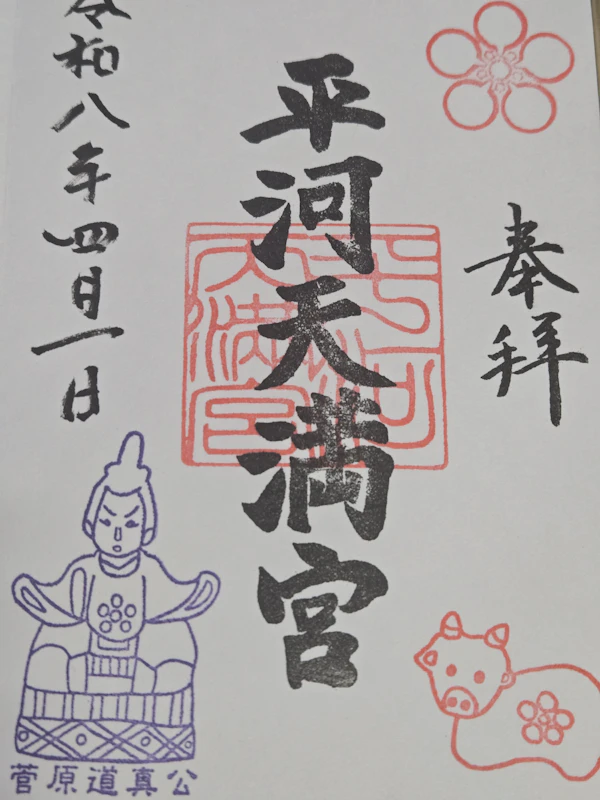 奉拝
平河天満宮
平河天満宮
令和八年四月一日
菅原道真公